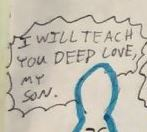 I WILL TEACH
YOU DEEP LOVE,
MY
SON.